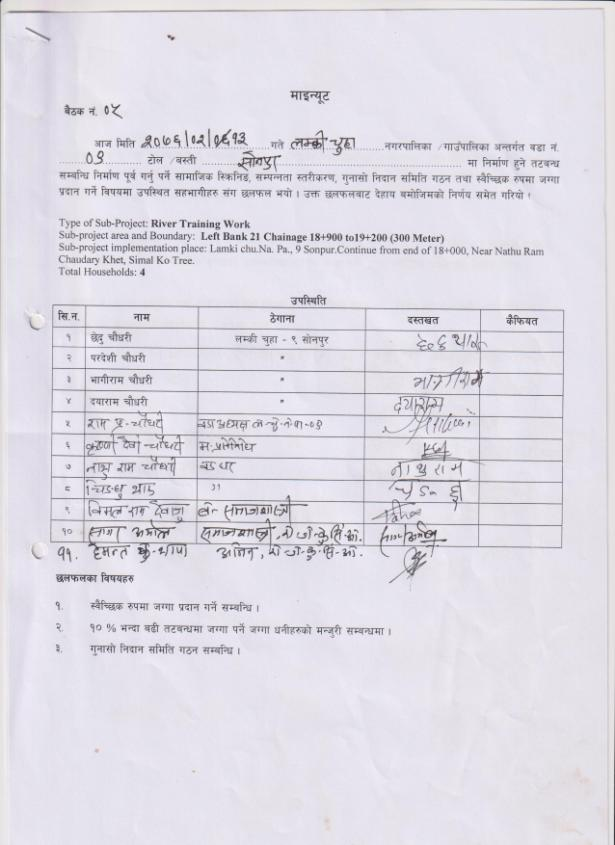 माइन्यूट
बैठक नं. ०५
आज मिति २०७६/०२/ गते लम्की चुहा नगरपालिका /गाउँपालिका अन्तर्गत वडा नं.
०९ टोल /बस्ती सोनपुर मा निर्माण हुने तटबन्ध
सम्बन्धि निर्माण पूर्व गर्नु पर्ने सामाजिक स्किनिङ, सम्पन्नता स्तरीकरण, गुनासो निदान समिति गठन तथा स्वैच्छिक रुपमा जग्गा
प्रदान गर्ने विषयमा उपस्थित सहभागीहरु संग छलफल भयो । उक्त छलफलबाट देहाय बमोजिमको निर्णय समेत गरियो ।
Type of Sub-Project: River Training Work
Sub-project area and Boundary: Left Bank 21 Chainage 18+900 to19+200 (300 Meter)
Sub-project implementation place: Lamki chu.Na. Pa., 9 Sonpur.Continue from end of 18+000, Near Nathu Ram
Chaudary Khet, Simal Ko Tree.
Total Households: 4
उपस्थिति
सि.न. नाम ठेगाना दस्तखत कैफियत
१ छेदु चौधरी लम्की चुहा - ९ सोनपुर
२ परदेशी चौधरी "
३ भागीराम चौधरी " भागीराम
४ दयाराम चौधरी " दयाराम
५ राम प्र. चौधरी वडा अध्यक्ष
६ कृष्णा देवी चौधरी म. प्रतिनिधि
७ नाथु राम चौधरी नाथुराम
८ "
९ विमल राम
१० समाजशास्त्री
११. हेमन्त कु. थापा
छलफलका विषयहरु
१. स्वैच्छिक रुपमा जग्गा प्रदान गर्ने सम्बन्धि ।
२. १० % भन्दा बढी तटबन्धमा जग्गा पर्ने जग्गा धनीहरुको मन्जुरी सम्बन्धमा ।
३. गुनासो निदान समिति गठन सम्बन्धि ।